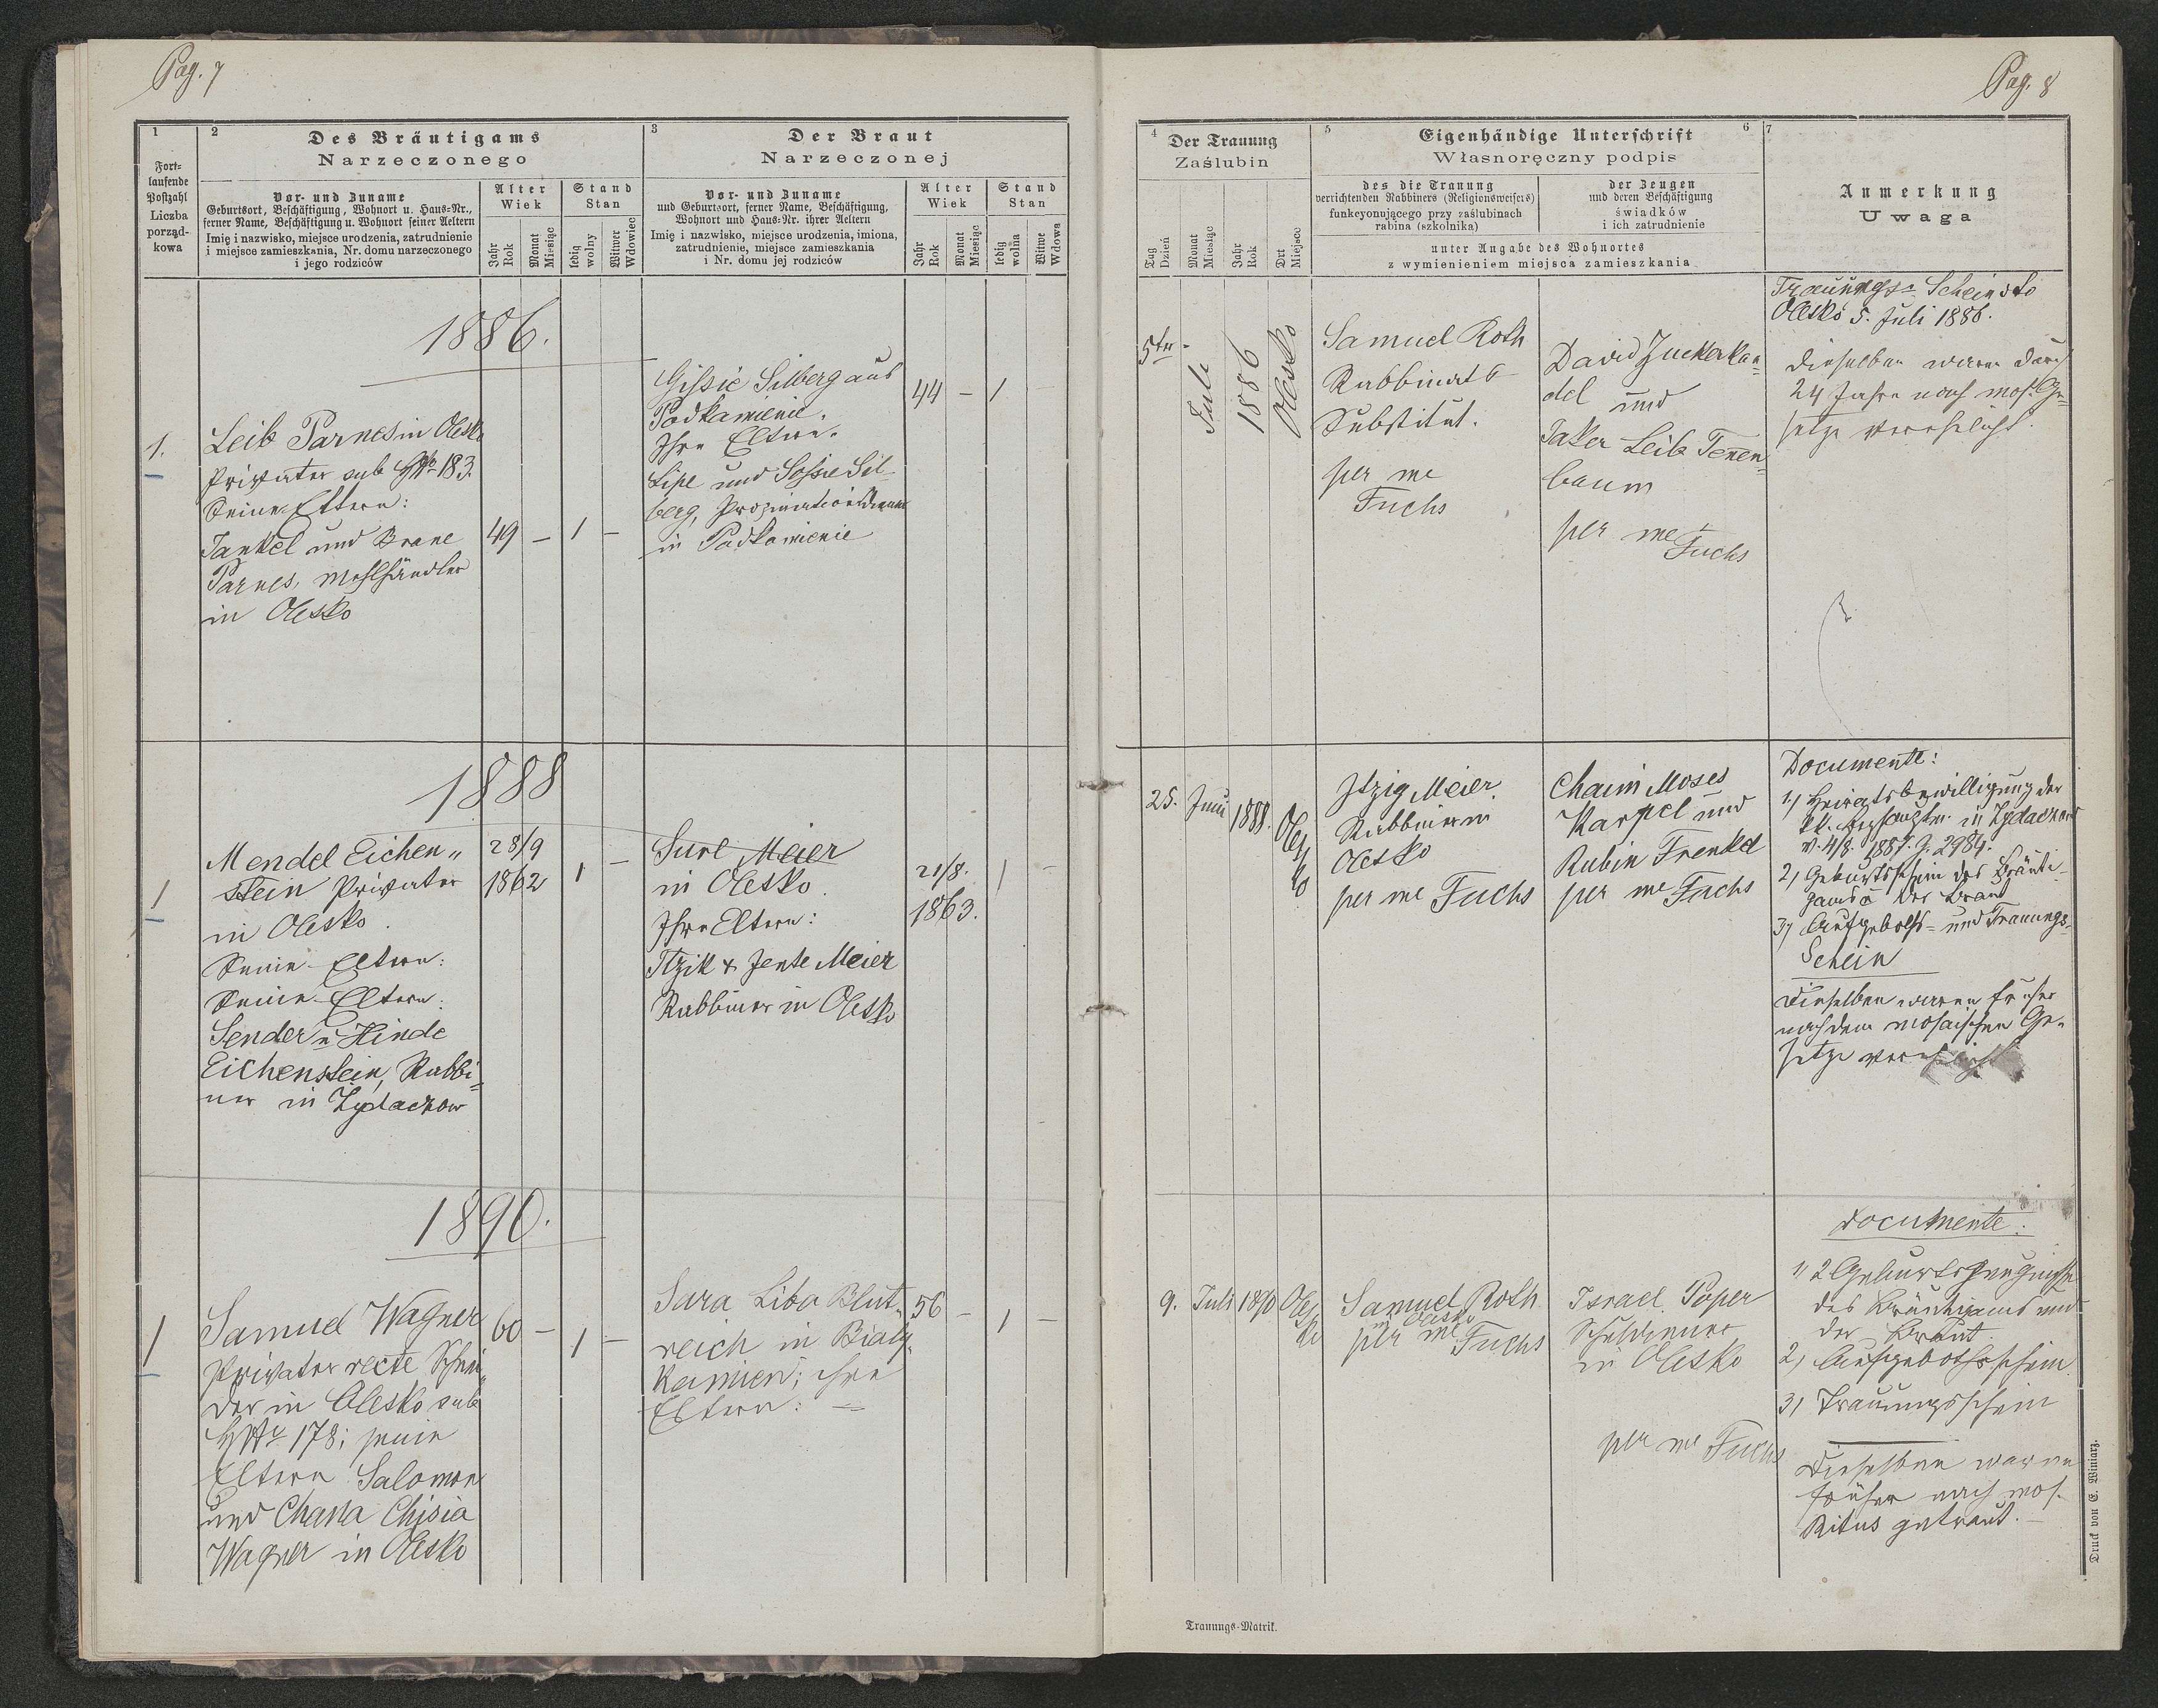 Pag. 7
1
Fort-
laufende
Postzahl
Liczba
porząd-
kowa
2
Des Bräutigams
Narzeczonego
Vor- und Zuname
Geburtsort, Beschäftigung, Wohnort u. Haus-Nr.,
ferner Name, Beschäftigung u. Wohnort seiner Aeltern
Imię i nazwisko, miejsce urodzenia, zatrudnienie
i miejsce zamieszkania, Nr. domu narzeczonego
i jego rodziców
Alter
Wiek
Jahr
Rok
Monat
Miesiąc
Stand
Stan
ledig
wolny
Witwer
Wdowiec
3
Der Braut
Narzeczonej
Vor- und Zuname
und Geburtsort, ferner Name, Beschäftigung,
Wohnort und Haus-Nr. ihrer Aeltern
Imię i nazwisko, miejsce urodzenia, imiona,
zatrudnienie, miejsce zamieszkania
i Nr. domu jej rodziców
Alter
Wiek
Jahr
Rok
Monat
Miesiąc
Stand
Stan
ledig
wolna
Witwe
Wdowa
1886.
1.
Leib Parnes in Olesko
Privater sub HNo 183.
Seine Eltern:
Jankel und Brane
Parnes, Mehlhändler
in Olesko
49 – 1 –
Gissie Silberg aus
Podkamienie.
Ihre Eltern.
Lipe und Sossie Sil-
berg, Propinations
in Podkamienie
44 – 1 –
1888
1
Mendel Eichen„
stein Privater
in Olesko.
Seine Eltern:
Seine Eltern:
Sender u Hinde
Eichenstein, Rabbi=
ner in Zydaczow
28/9
1862
1 –
Sure Meier
in Olesko.
Ihre Eltern:
Itzik & Jente Meier
Rabbiner in Olesko
21/8.
1863.
1 –
1890.
1
Samuel Wagner
Privater recte Schnei„
der in Olesko sub
HNr 178; seine
Eltern Salomon
und Chana Chisia
Wagner in Olesko
60 – 1 –
Sara Liba Blut„
reich in Bialy„
kamien; ihre
Eltern: –
56 – 1 –
Pag. 8
4
Der Trauung
Zaślubin
Tag
Dzień
Monat
Miesiąc
Jahr
Rok
Ort
Miejsce
5
Eigenhändige Unterschrift
6
Własnoręczny podpis
des die Trauung
verrichtenden Rabbiners (Religionsweisers)
funkcyonującego przy zaślubinach
rabina (szkolnika)
der Zeugen
und deren Beschäftigung
świadków
i ich zatrudnienie
unter Angabe des Wohnortes
z wymienieniem miejsca zamieszkania
7
Anmerkung
Uwaga
5ter
Juli
1886
Olesko
Samuel Roth
Rabbinats
Substitut.
per me
Fuchs
David Zuckerkan=
del und
Jaker Leib Tenen=
baum
per me Fuchs
Trauungs= Schein dto
Olesko 5. Juli 1886.
Dieselben waren durch
24 Jahre nach mos. Ge=
setze verehelicht.
25. Juni 1888. Oles
ko
Itzig Meier
Rabbiner in
Olesko
per me Fuchs
Chaim Moses
Karpel und
Rubin Frenkel
per me Fuchs
Documente:
1) Heiratsbewilligung der
kk. Bezhauptm. in Zydaczow
v. 4/8. 1887. Z. 2984.
2) Geburtsschein des Bräuti-
gams u der Braut
3) Aufgeboths= und Trauungs=
Schein
Dieselben waren früher
nach dem mosaischen Ge-
setze verehelicht
9. Juli 1890 Oles
ko
Samuel Roth
in Olesko
per me Fuchs
Israel Poper
Schuldiener
in Olesko
per me Fuchs
Documente:
1) 2 Geburtszeugnisse
des Bräutigams und
der Braut
2) Aufgebothsschein
3) Trauungsschein
Dieselben waren
früher nach mos.
Ritus getraut. –
Druck von E. Winiarz.
Trauungs-Matrik.